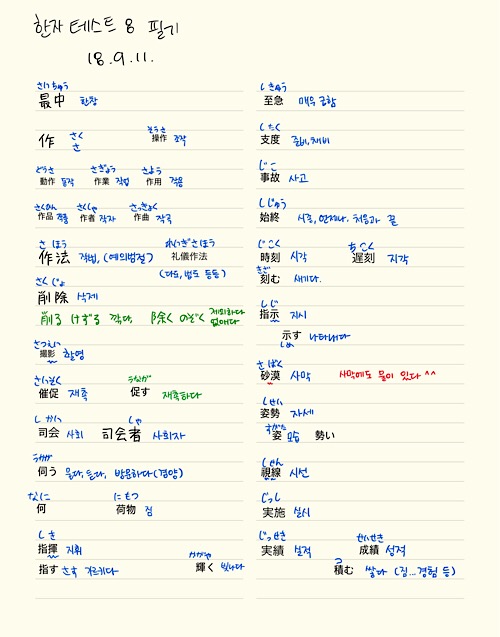 한자 테스트 8 필기
18.9.11.
さいちゅう
最中 한창
作 さく さ
そうさ
操作 조작
どうさ さぎょう さよう
動作 동작 作業 작업 作用 작용
さくひん さくしゃ さっきょく
作品 작품 作者 작자 作曲 작곡
さ ほう れいぎさほう
作法 작법, (예의범절) 礼儀作法
(다도, 법도 등등)
さくじょ
削除 삭제
削る けずる 깎다, 除く のぞく 제외하다 없애다
さつえい
撮影 촬영
さいそく うなが
催促 재촉 促す 재촉하다
しかい しゃ
司会 사회 司会者 사회자
うかが
伺う 묻다, 듣다, 방문하다 (겸양)
なに にもつ
何 荷物 짐
しき
指揮 지휘
かがや
指す さす 가르키다 輝く 빛나다
しきゅう
至急 매우 급함
したく
支度 준비, 채비
じこ
事故 사고
しじゅう
始終 시종, 언제나. 처음과 끝
じこく ちこく
時刻 시각 遅刻 지각
きざ
刻む 새기다.
しじ
指示 지시
示す 나타내다
しめ
さばく
砂漠 사막 사막에도 물이 있다 ^^
しせい
姿勢 자세
すがた
姿 모습 勢い
しせん
視線 시선
じっし
実施 실시
じっせき せいせき
実績 실적 成績 성적
つ
積む 쌓다 (짐... 경험 등)